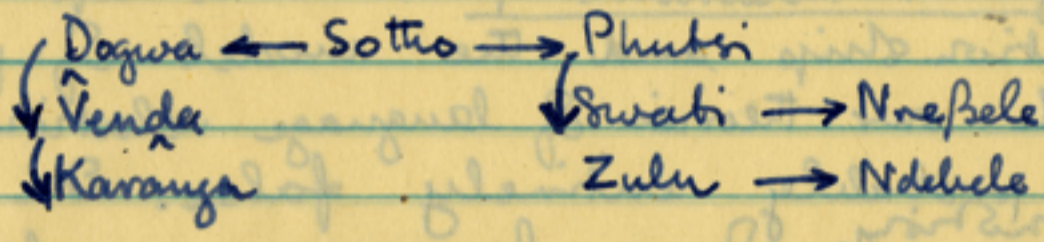 Dogwa ← Sotho → Phuthi
V̂enda Swati → Nreβele
Karanga Zulu → Ndebele